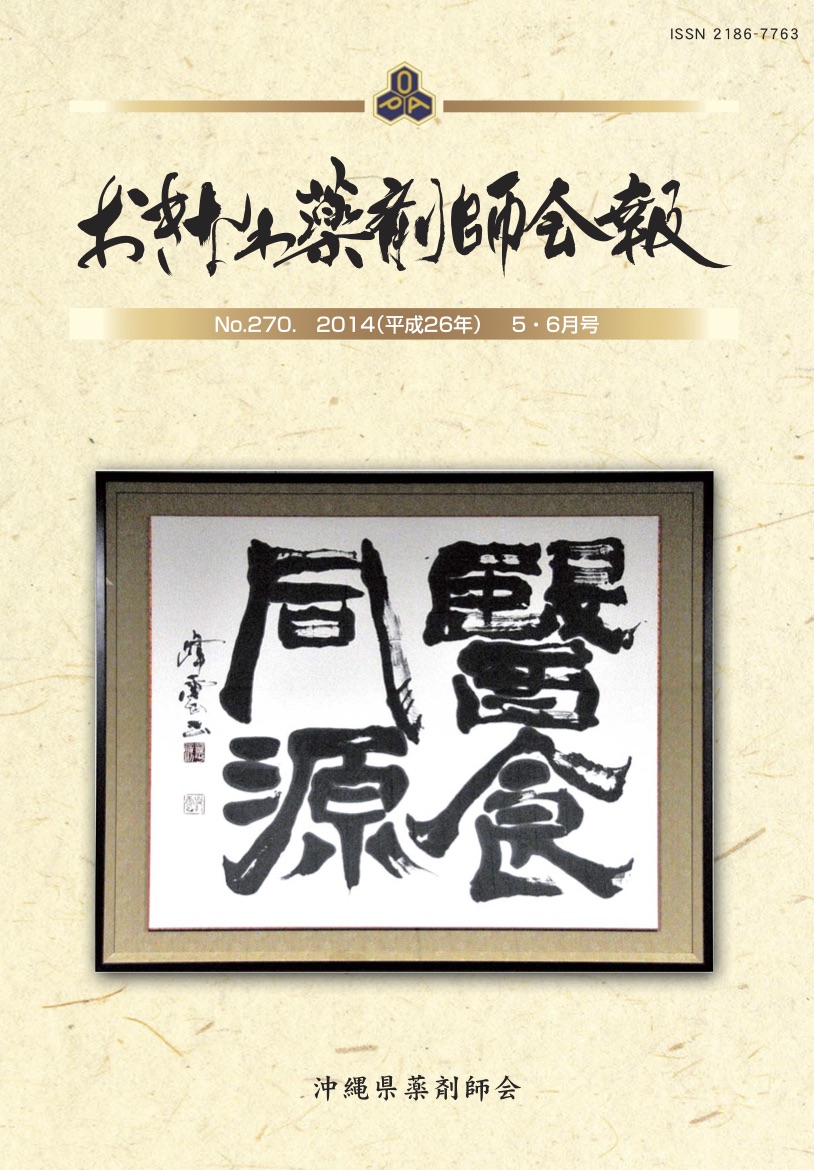 ISSN 2186-7763
OPA
おきなわ薬剤師会報
No.270. 2014(平成26年) 5・6月号
醫食
同源
沖縄県薬剤師会